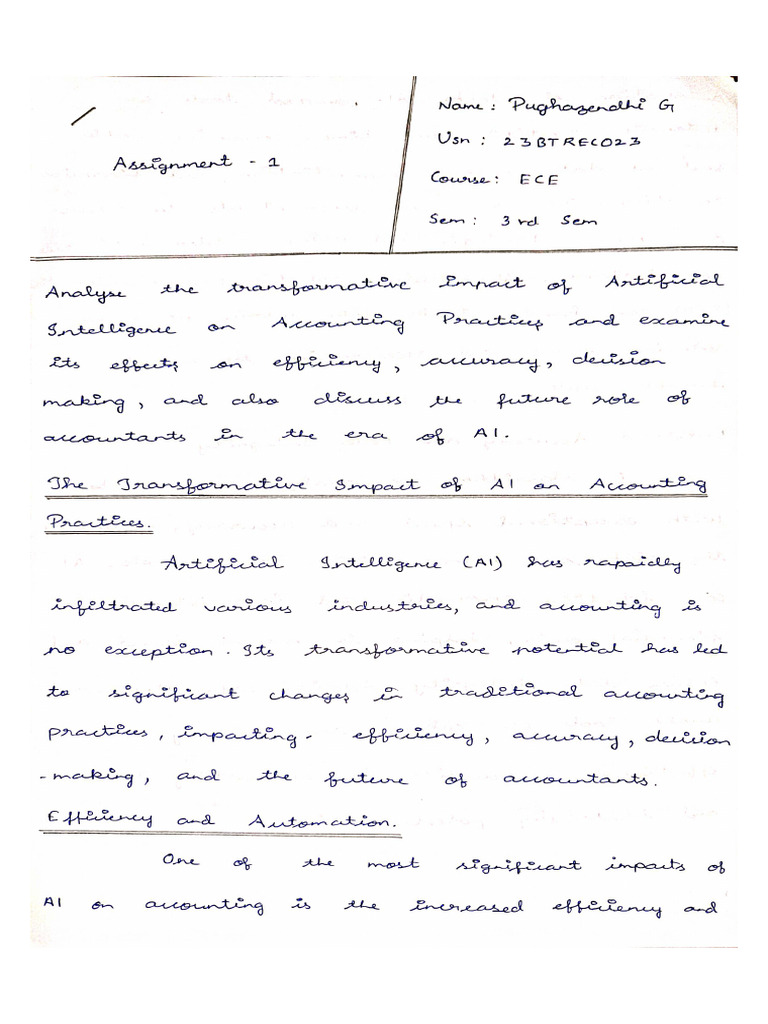 Name : Pughazendhi G
Usn : 23BTREC023
Assignment - 1
Course : ECE
Sem : 3rd Sem
Analyse the transformative impact of Artificial
Intelligence on Accounting Practices and examine
its effects on efficiency, accuracy, decision
making, and also discuss the future role of
accountants in the era of AI.
The Transformative Impact of AI on Accounting
Practices.
Artificial Intelligence (AI) has rapaidly
infiltrated various industries, and accounting is
no exception. Its transformative potential has led
to significant changes in traditional accounting
practices, impacting - efficiency, accuracy, decision
-making, and the future of accountants.
Efficiency and Automation.
One of the most significant impacts of
AI on accounting is the increased efficiency and